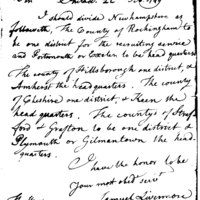 Sir
I should divide Newhampshire as
followeth, The County of Rockingham to
be one district for the recruiting service
and Portsmouth or Exeter to be head quarters
The county of Hillsborough one district, &
Amherst the head quarters. The county
of Cheshire one district, & Keen the
head quarters. The countys of Straf
ford & Grafton to be one district &
Plymouth or Gilmantown the head
quarters.
I have the honor to be
Your most obed servt
Samuel Livermore